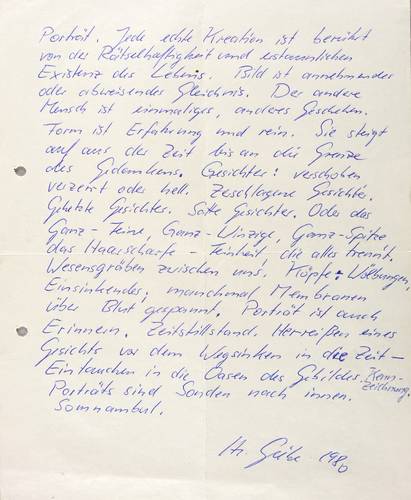 Porträt. Jede echte Kreation ist berührt
von der Rätselhaftigkeit und erstaunlichen
Existenz des Lebens. Bild ist annehmendes
oder abweisendes Gleichnis. Der andere
Mensch ist einmaliges, anderes Geschehen.
Form ist Erfahrung und rein. Sie steigt
auf aus der Zeit bis an die Grenze
des Gedankens. Gesichter: verschoben
verzerrt oder hell. Zerschlagene Gesichter.
Gehetzte Gesichter. Satte Gesichter. Oder das
Ganz-Feine, Ganz-Winzige, Ganz-Spitze
das Haarscharfe-Feinheit, die alles trennt.
Wesensgräben zwischen uns. Köpfe: Wölbungen,
Einsinkendes, manchmal Membranen
über Blut gespannt. Porträt ist auch
Erinnern. Zeitstillstand. Herreißen eines
Gesichts vor dem Wegsinken in die Zeit –
Eintauchen in die Oasen des Gebildes. Kenn-
zeichnung.
Porträts sind Sonden nach innen.
Somnambul.
1980